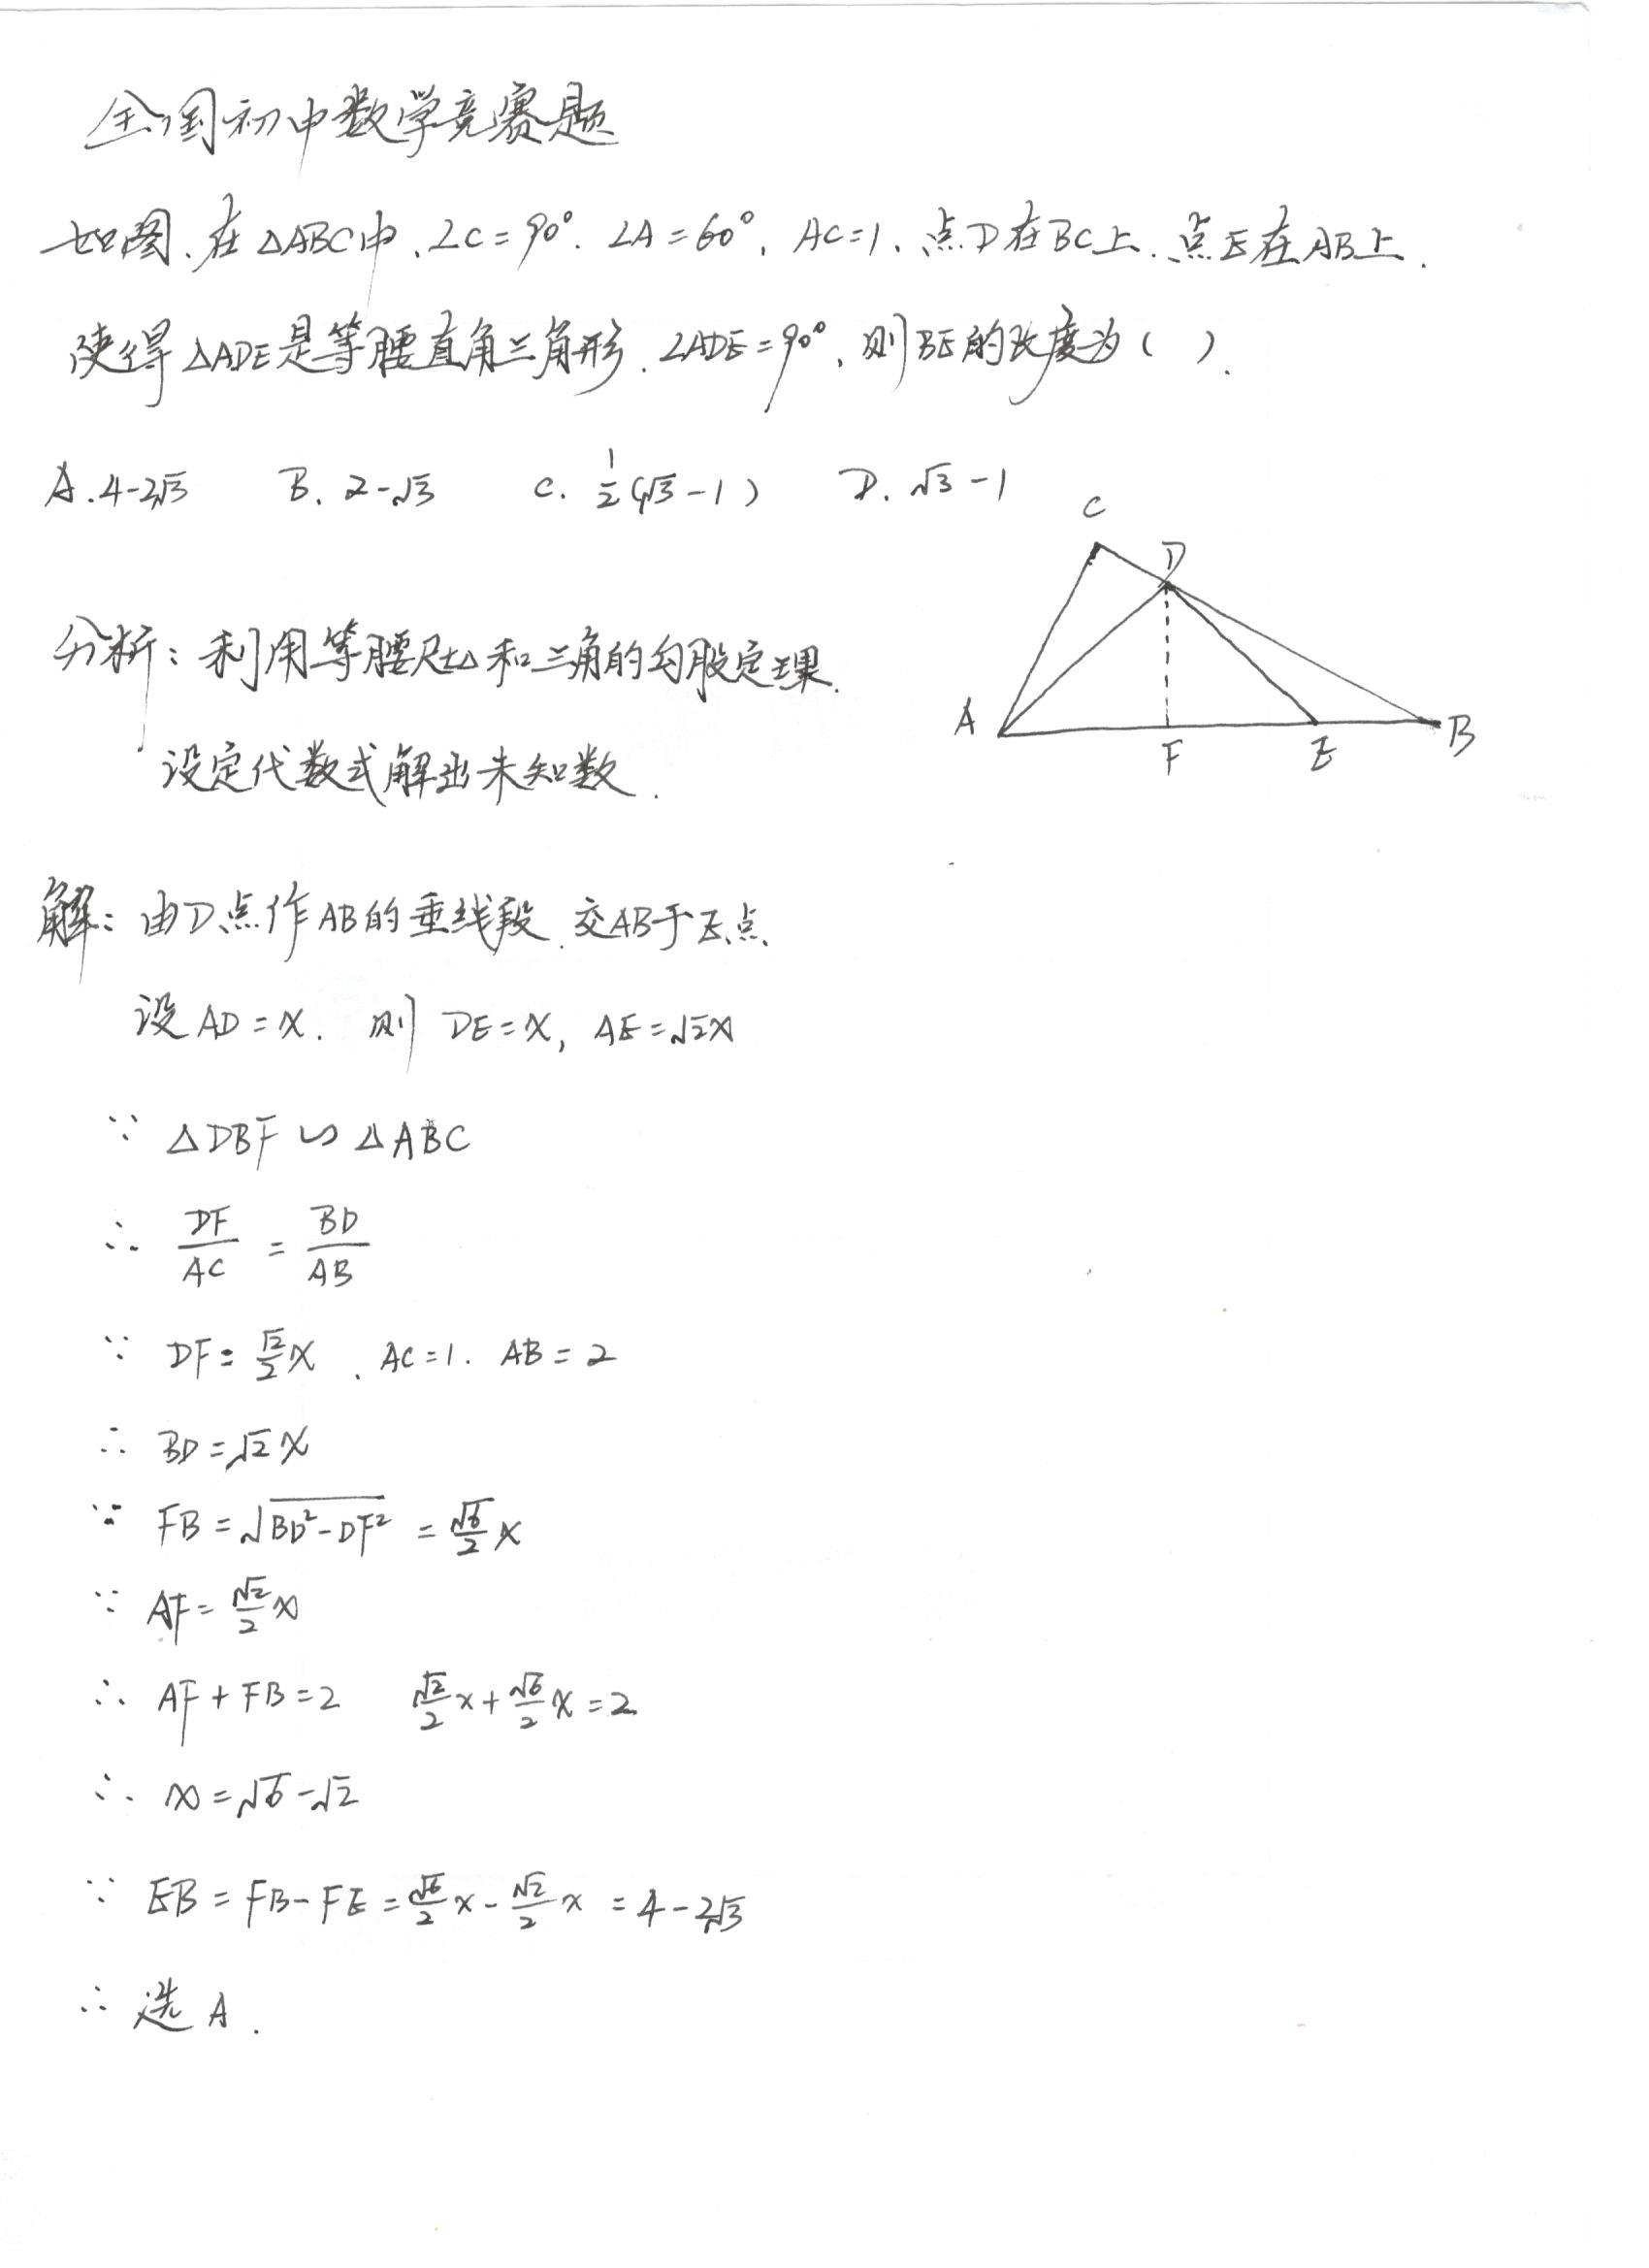 全国初中数学竞赛题
如图、在△ABC中、∠C=90°. ∠A=60°, AC=1、点D在BC上、点E在AB上.
使得△ADE是等腰直角三角形. ∠ADE=90°, 则BE的长度为( ).
A. 4-2√3 B. 2-√3 C. 1/2(√3-1) D. √3-1
C
D
A
F
E
B
分析: 利用等腰Rt△和三角的勾股定理.
设定代数式解出未知数.
解: 由D点作AB的垂线段. 交AB于E点
设AD=x. 则 DE=x, AE=√2x
∵ △DBF∽△ABC
∴ DF/AC = BD/AB
∵ DF=√2/2x、AC=1. AB=2
∴ BD=√2x
∵ FB=√(BD²-DF²) = √6/2x
∵ AF=√2/2x
∴ AF+FB=2 √2/2x+√6/2x=2
∴ x=√6-√2
∵ EB=FB-FE=√6/2x-√2/2x=4-2√3
∴ 选A.